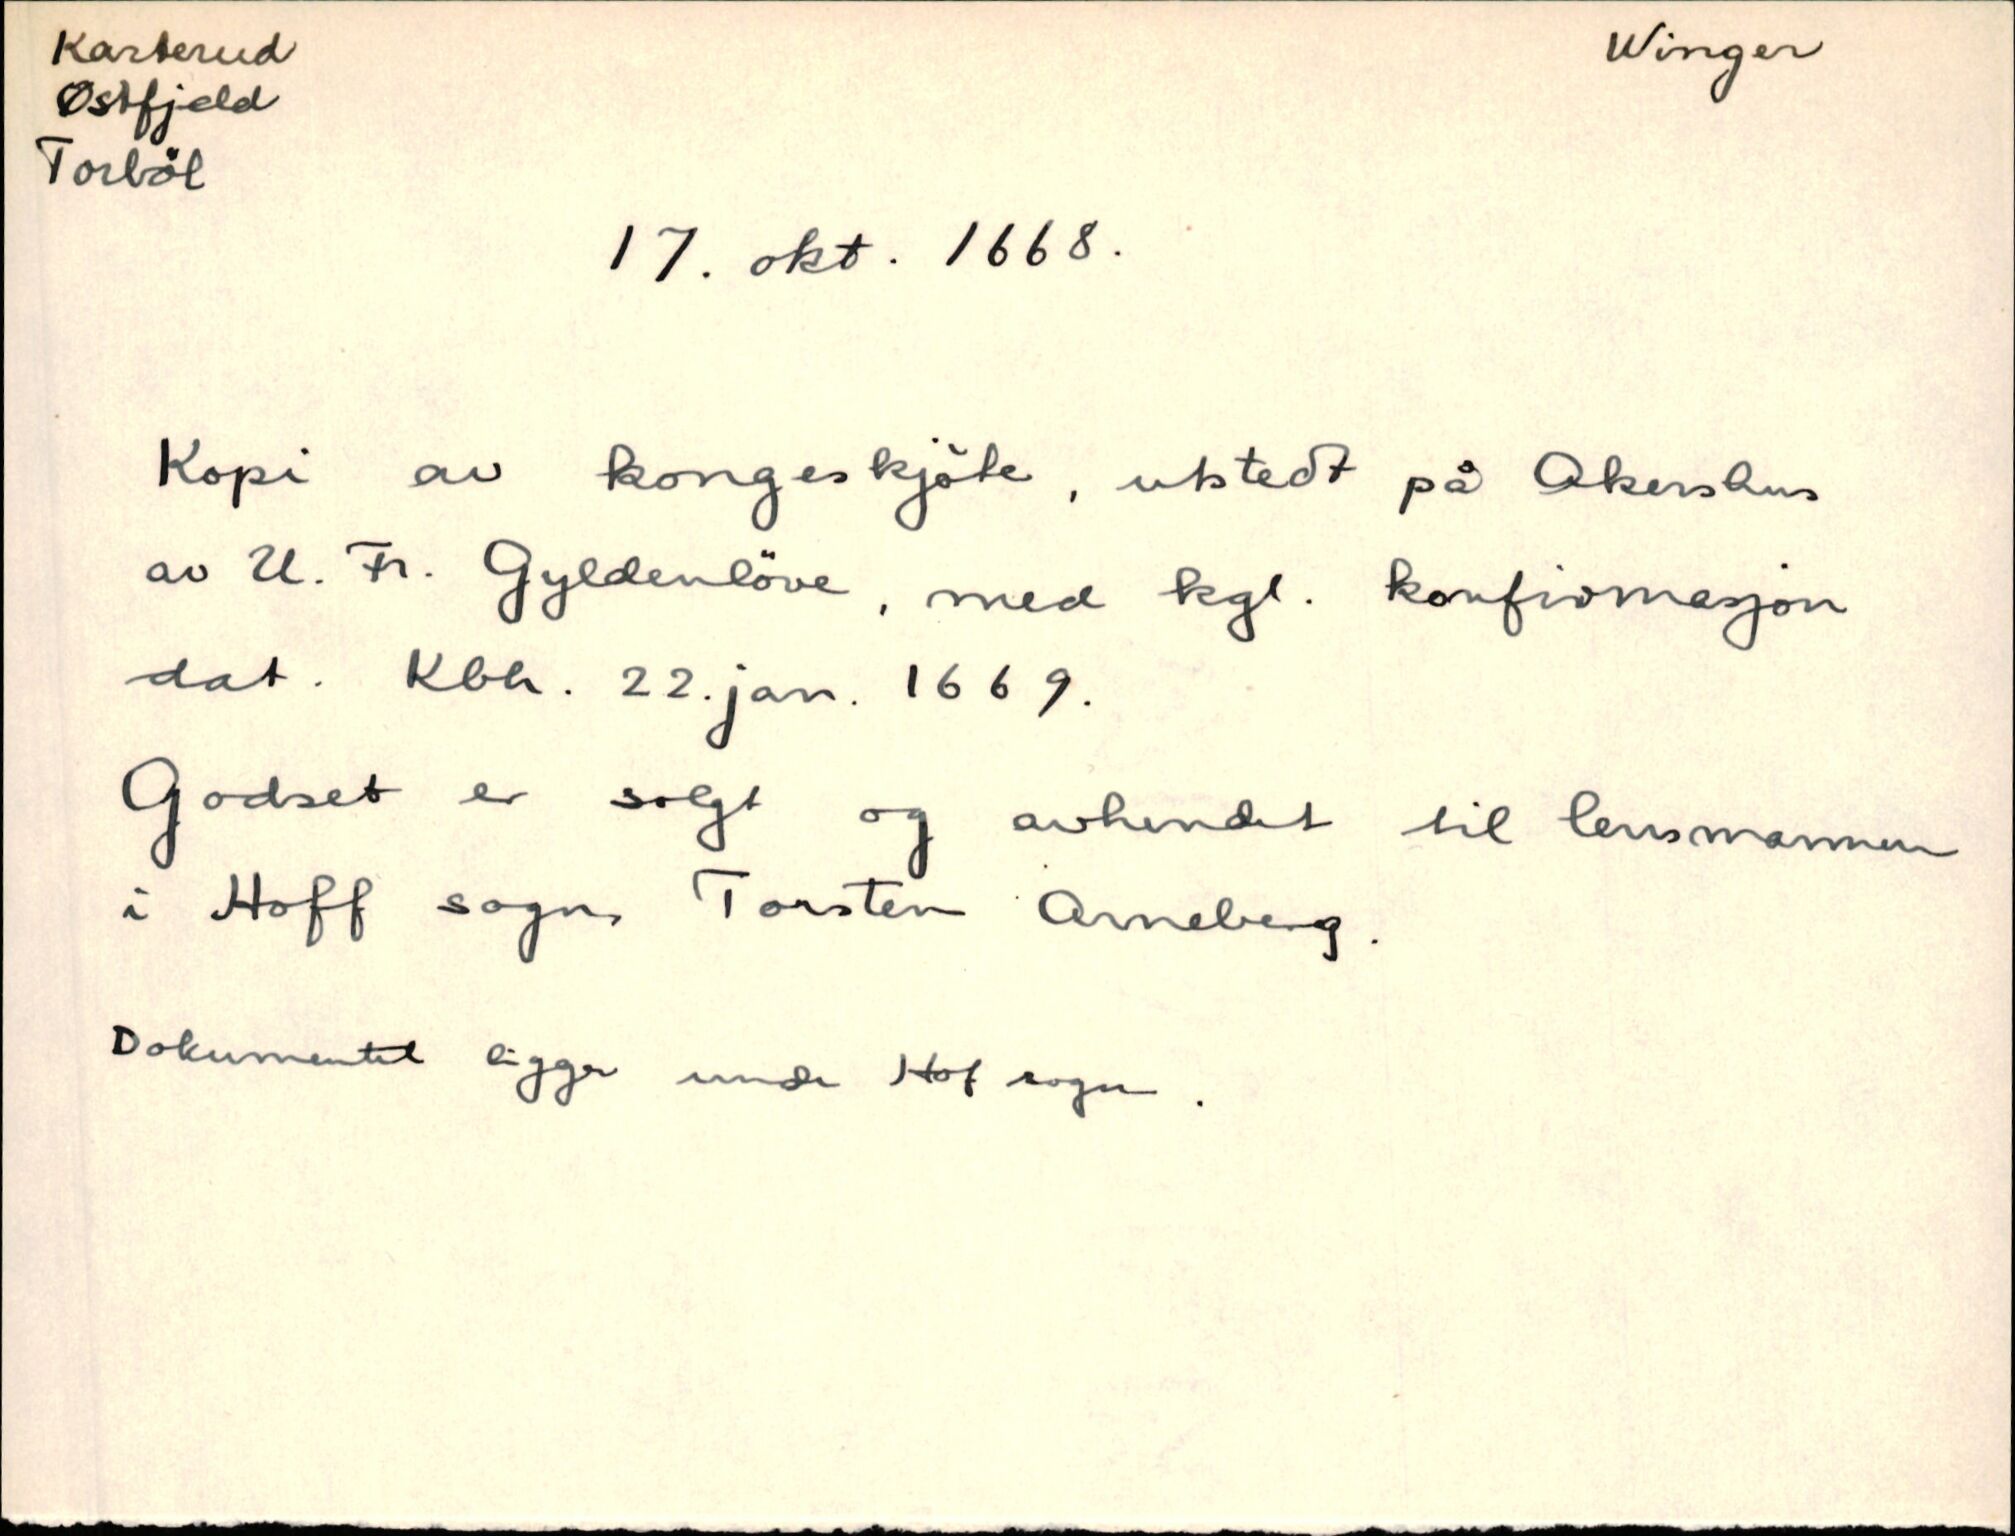 Karterud
Østfjeld
Torböl
Winger
17. okt. 1668.
Kopi av kongeskjöte, utstedt på Akershus
av U. Fr. Gyldenlöve, med kgl. konfirmasjon
dat. Kbh. 22. jan. 1669.
Godset er solgt og avhendet til lensmannen
i Hoff sogn, Torsten Arneberg.
Dokumentet ligger under Hof sogn.